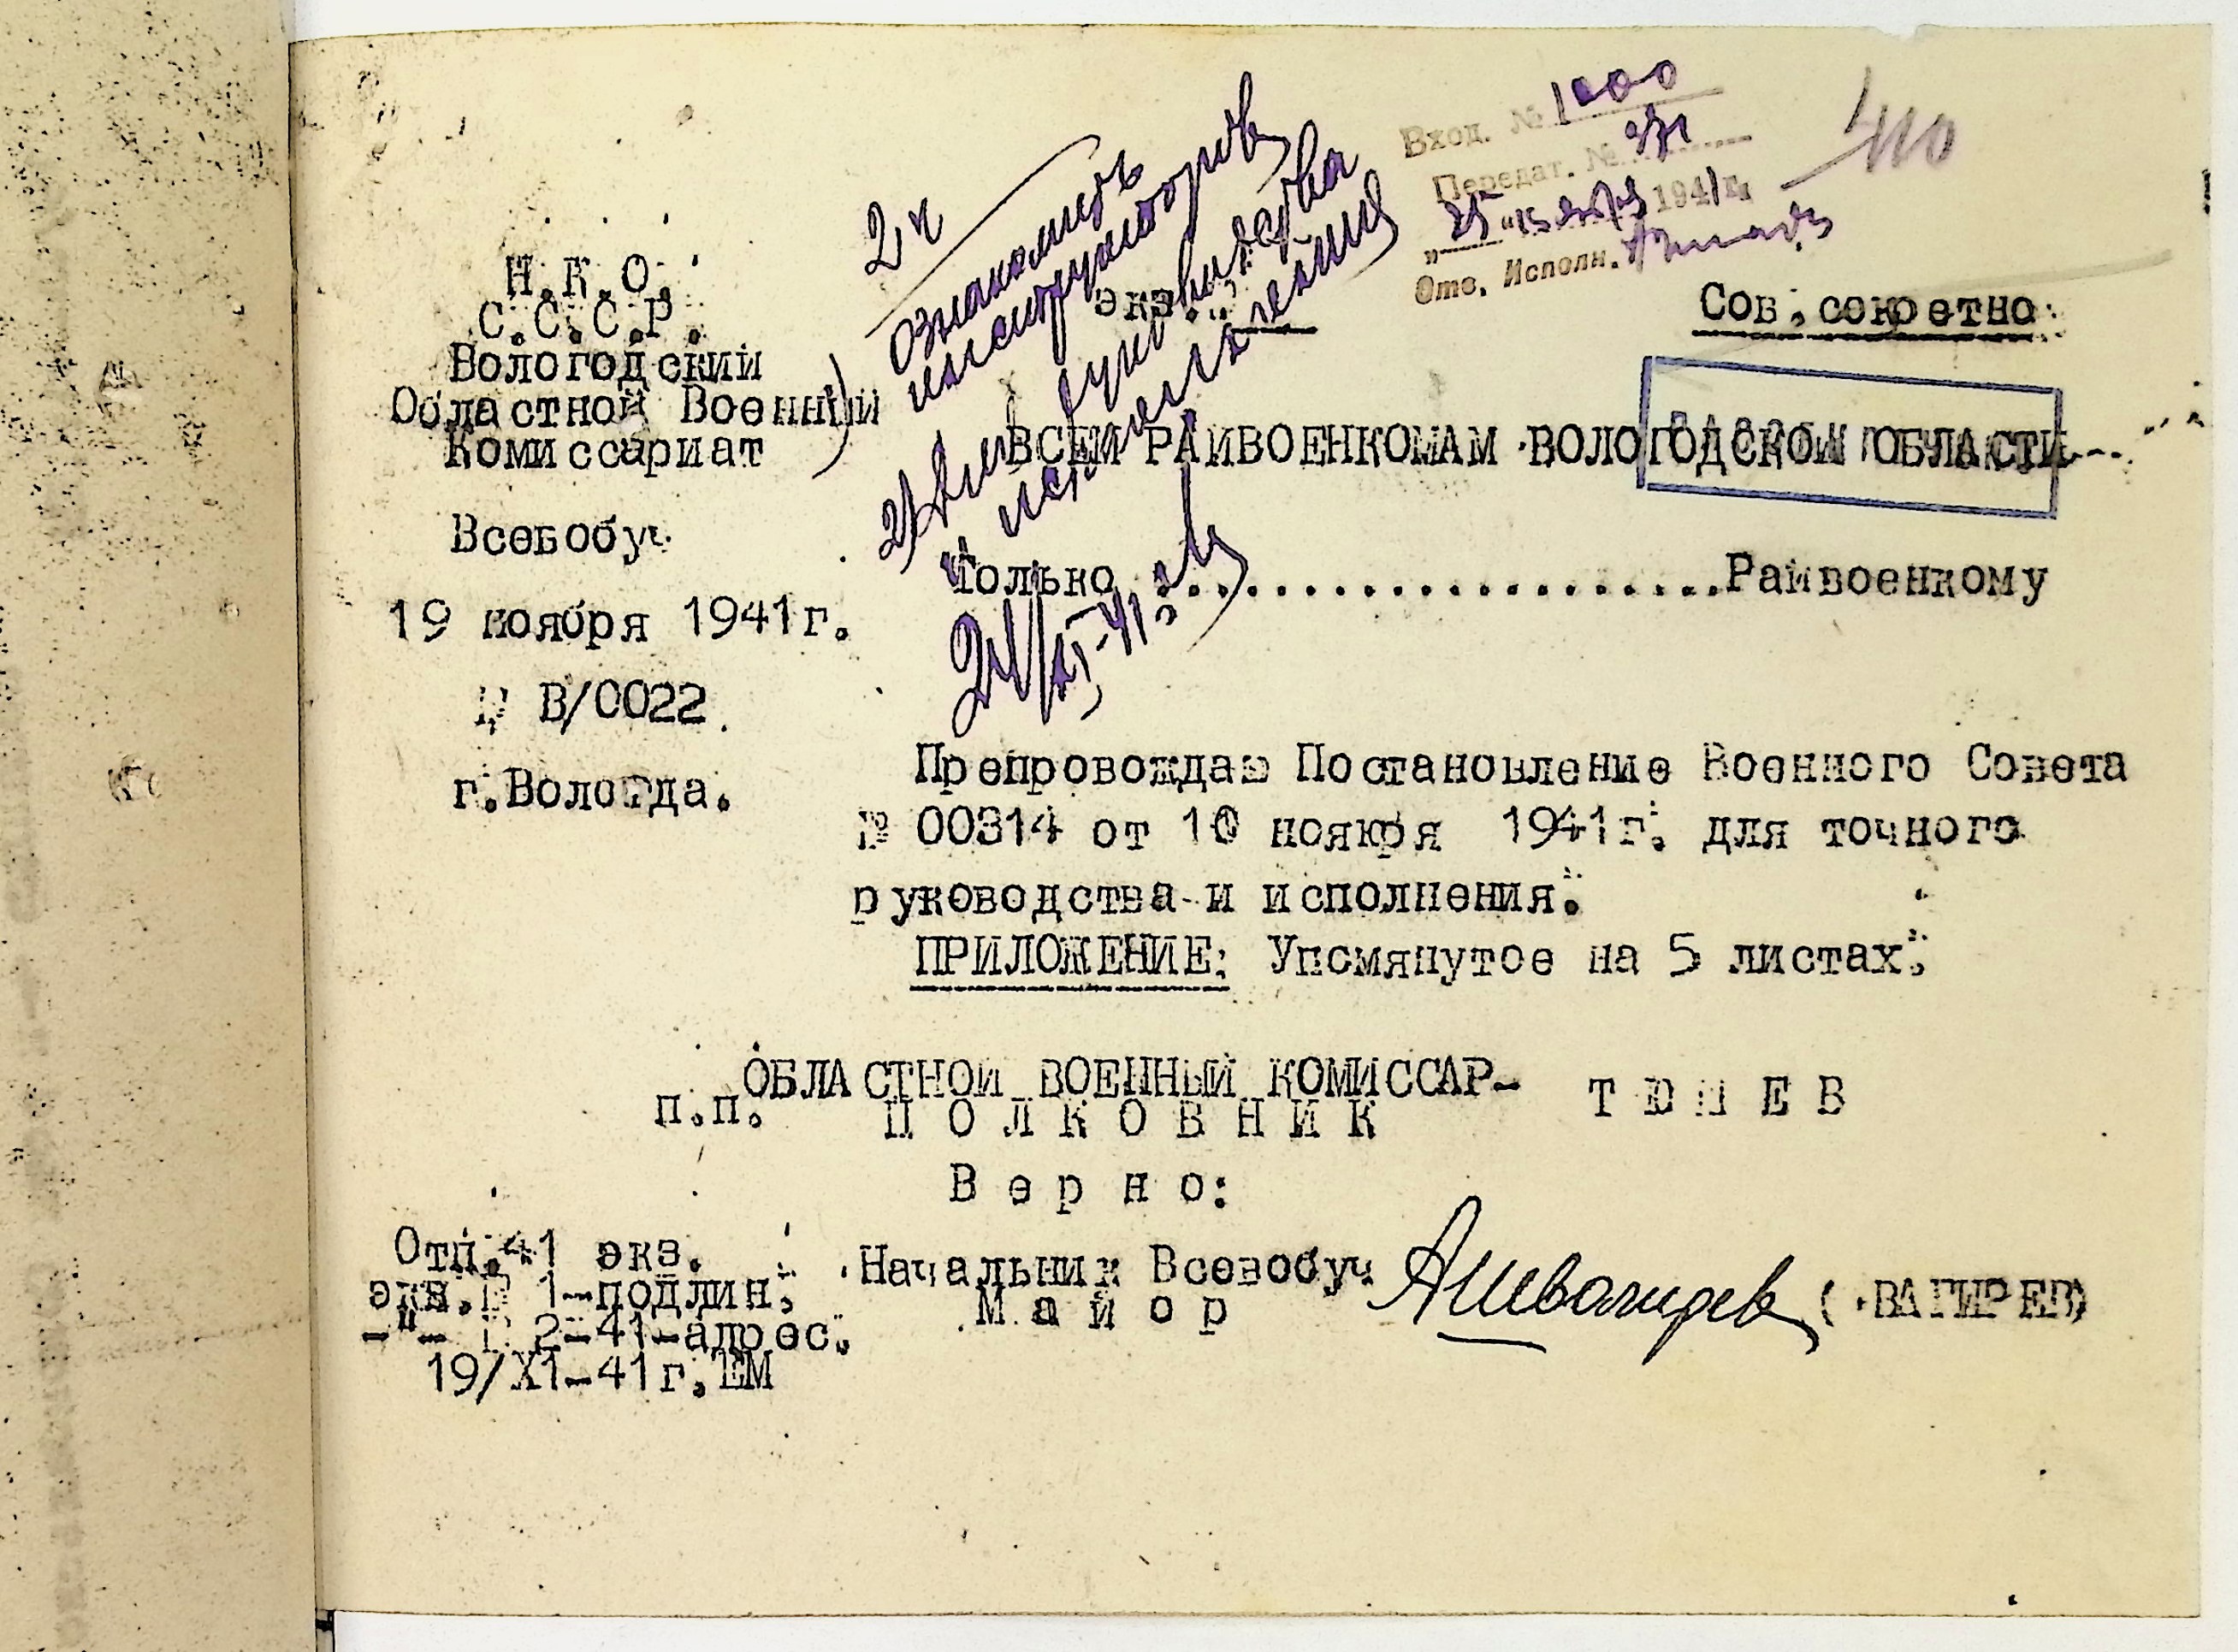 Н.К.О.
С.С.С.Р.
Вологодский
Областной Военный
Комиссариат
Всевобуч
19 ноября 1941г.
№ В/0022.
г.Вологда.
2 ч
Ознакомить
инструкторов
руководства
и исполнения
24/XI-41
Вход. № 1000
Передат. №
„25“ 1941 г.
Отв. Исполн.
экз.
Сов. секретно.
ВСЕМ РАЙВОЕНКОМАМ ВОЛОГОДСКОЙ ОБЛАСТИ
только ....................Райвоенкому
Препровождаю Постановление Военного Совета
№ 00314 от 10 ноября 1941г. для точного
руководства и исполнения.
ПРИЛОЖЕНИЕ: Упомянутое на 5 листах.
ОБЛАСТНОЙ ВОЕННЫЙ КОМИССАР-
п.п. ПОЛКОВНИК
В е р н о:
Начальник Всевобуч
Майор
Отп. 41 экз.
экз.№ 1-подлин.
-"- № 2-41-адрес.
19/XI-41г. ЕМ